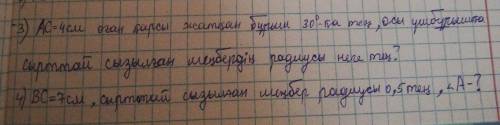 3) AC=4см оған қарсы жатқан бұрыш 30°-қа тең, осы үшбұрышқа
сырттай сызылған шеңбердің радиусы неге тең?
4) BC=7см, сырттай сызылған шеңбер радиусы 0,5 тең, ∠A-?